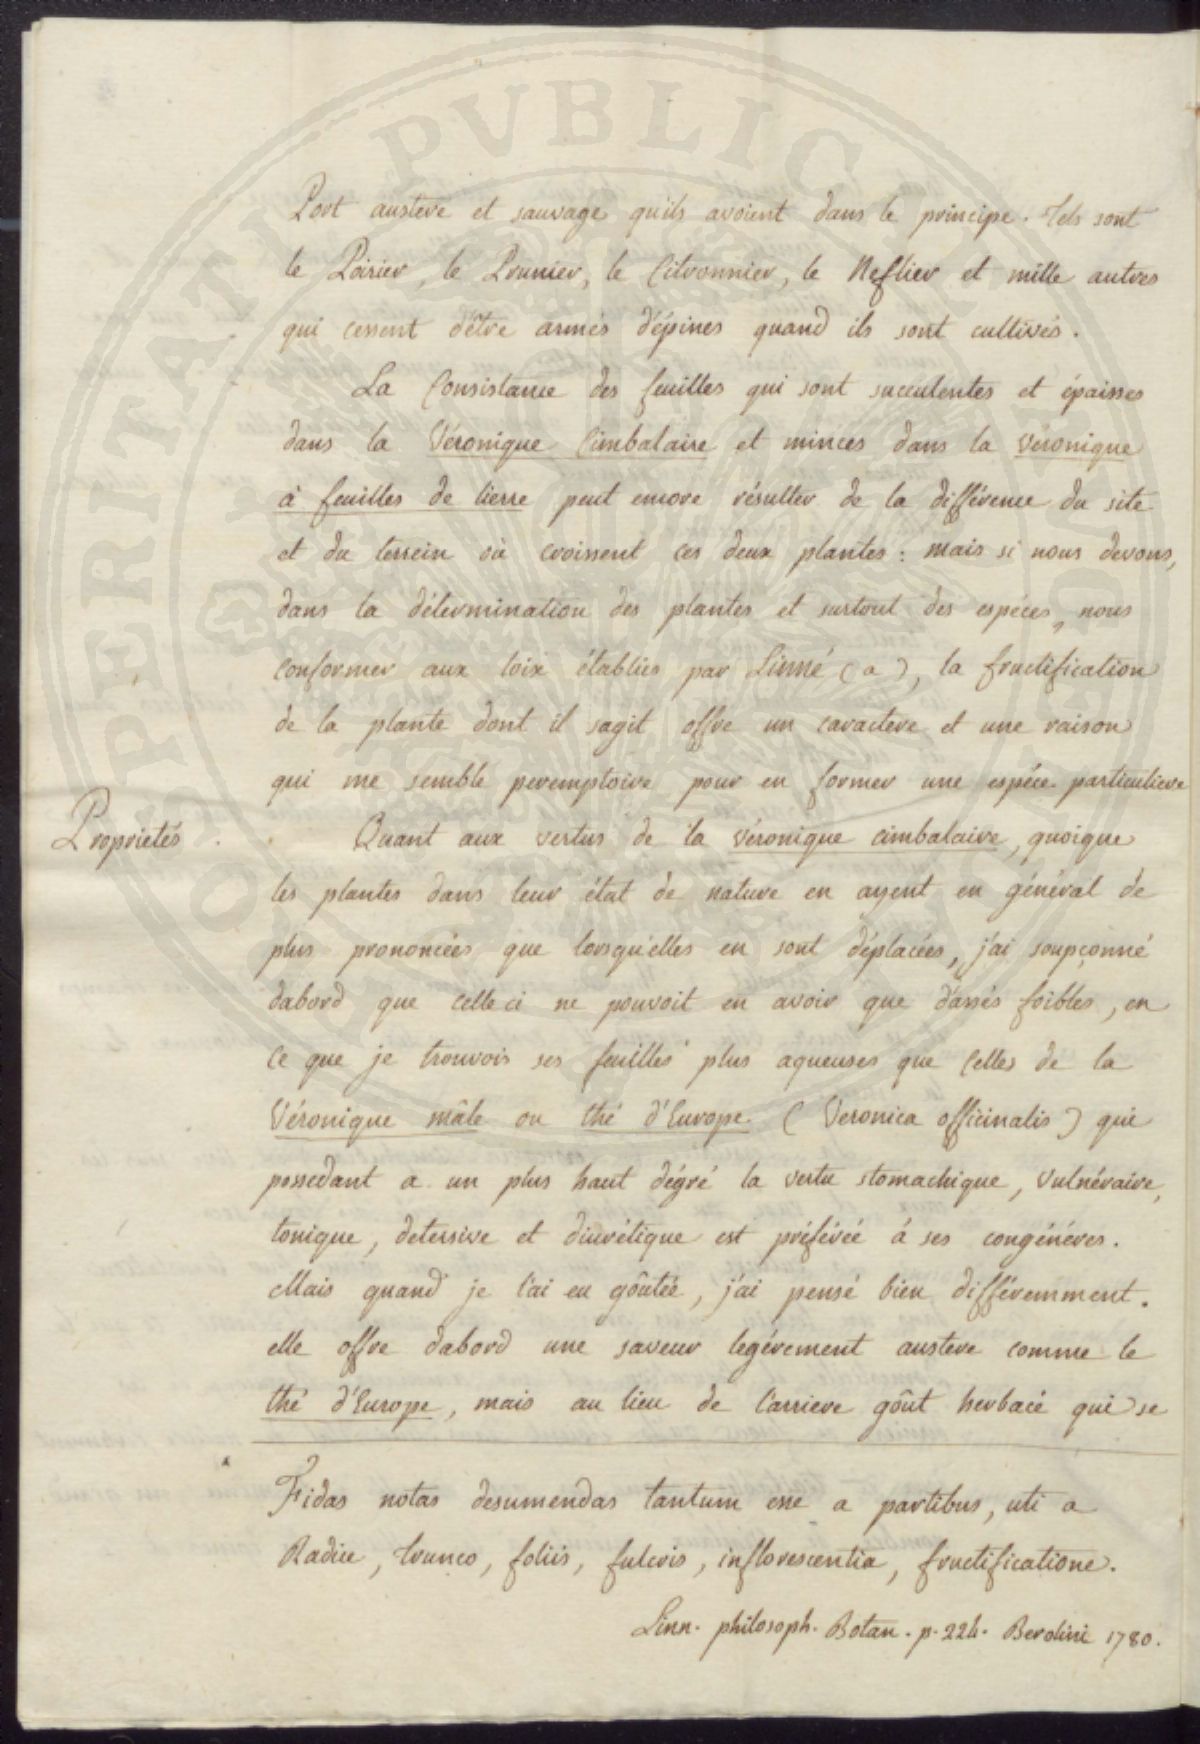 Port austere et sauvage quils avoient dans le principe. Tels sont
le Poirier, le Prunier, le Citronnier, le Neflier et mille autres
qui cessent d'être armés d'épines quand ils sont cultivés.
La Consistance des feuilles qui sont succulentes et épaisses
dans la Véronique Cimbalaire et minces dans la Véronique
à feuilles de lierre peut encore résulter de la différence du site
et du terrein où croissent ces deux plantes : mais si nous devons,
dans la détermination des plantes et surtout des espéces, nous
Conformer aux loix établies par Linné (a), la fructification
de la plante dont il sagit offre un caractere et une raison
qui me semble peremptoire pour en former une espéce particuliere
Proprietés
Quant aux vertus de la Véronique cimbalaire, quoique
les plantes dans leur état de nature en ayent en général de
plus prononcées que lorsqu'elles en sont déplacées, j'ai soupçonné
dabord que celle ci ne pouvoit en avoir que d'assés foibles, en
ce que je trouvois ses feuilles plus aqueuses que Celles de la
Véronique mâle ou thé d'Europe (Veronica officinalis) qui
possedant a un plus haut dégré la vertu stomachique, Vulnéraire,
tonique, detersive et diurétique est préférée á ses congénéres.
Mais quand je l'ai eu goûtée, j'ai pensé bien différemment.
elle offre dabord une saveur legérement austere comme le
thé d'Europe, mais au lieu de l'arriere goût herbacé qui se
Fidas notas desumendas tantum esse a partibus, uti a
Radice, trunco, foliis, fulcris, inflorescentia, fructificatione.
Linn. philosoph. Botan. p. 224. Berolini 1780.
OPERITATI PUBLICAE